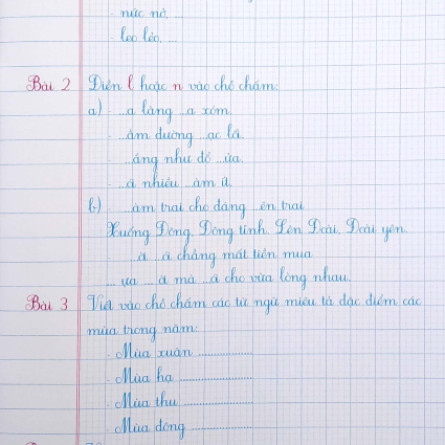 - nức nở. ...
- leo lẻo. ...
Bài 2 Điền l hoặc n vào chỗ chấm:
a) - ...a làng ...a xóm.
- ...ầm đường ...ạc lã.
- ...ắng như đổ ...ửa.
- ...ã nhiều ...ăm ít.
b) - ...àm trai cho đáng ...ên trai
Xuống Đông, Đông tĩnh, Lên Đoài, Đoài yên.
- ...ời ...ói chẳng mất tiền mua
...ựa ...ời mà ...ói cho vừa lòng nhau.
Bài 3 Viết vào chỗ chấm các từ ngữ miêu tả đặc điểm các
mùa trong năm:
- Mùa xuân ...............
- Mùa hạ ...............
- Mùa thu ...............
- Mùa đông ...............